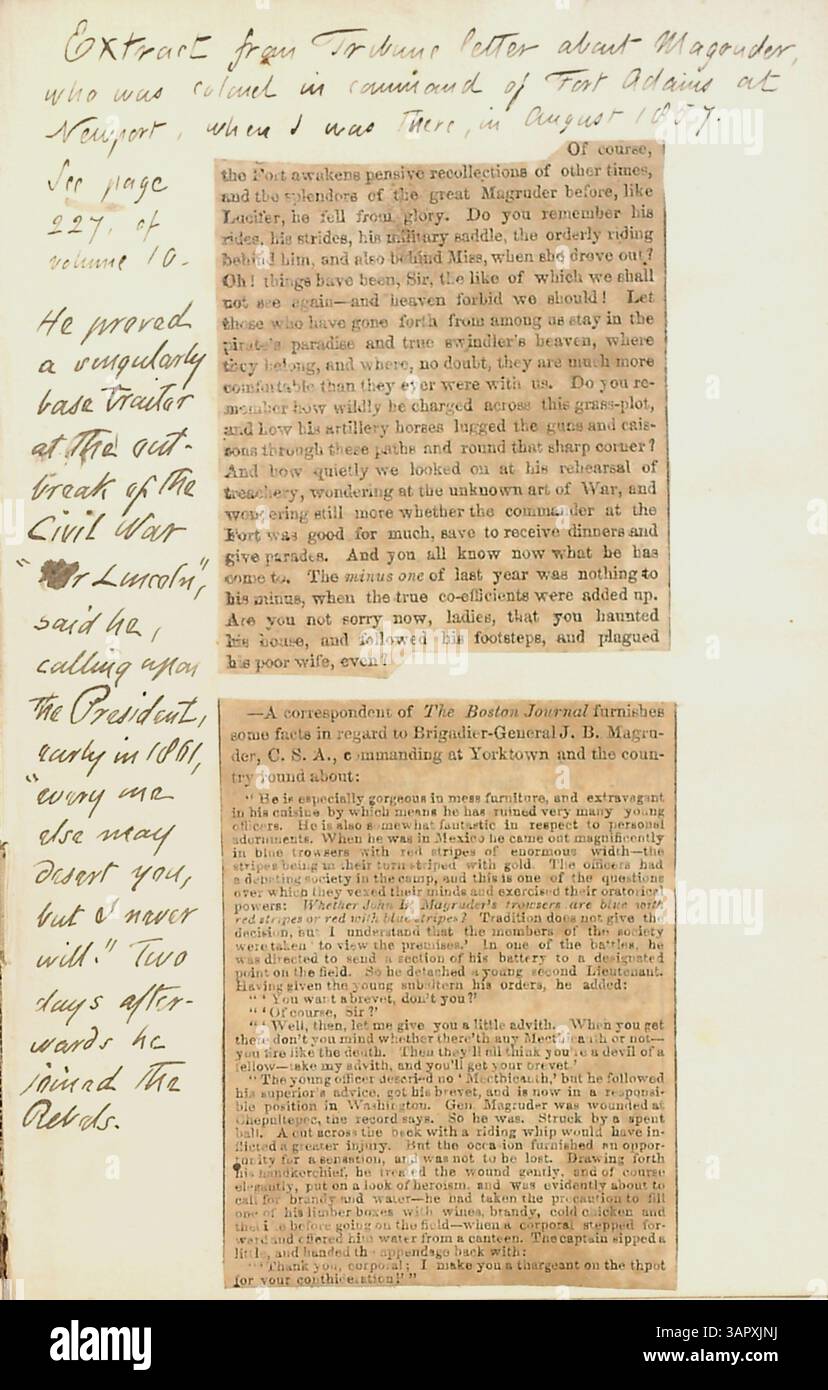 Extract from Tribune letter about Magruder,
who was colonel in command of Fort Adams at
Newport, when I was there, in August 1857.
See page
227, of
volume 10.
He proved
a singularly
base traitor
at the out-
break of the
Civil War
"Mr Lincoln",
said he,
calling upon
the President,
early in 1861,
"every one
else may
desert you,
but I never
will." Two
days after-
wards he
joined the
Rebels.
Of course,
the Fort awakens pensive recollections of other times,
and the splendors of the great Magruder before, like
Lucifer, he fell from glory. Do you remember his
rides, his strides, his military saddle, the orderly riding
behind him, and also behind Miss, when she drove out?
Oh! things have been, Sir, the like of which we shall
not see again—and heaven forbid we should! Let
those who have gone forth from among us stay in the
pirate's paradise and true swindler's heaven, where
they belong, and where, no doubt, they are much more
comfortable than they ever were with us. Do you re-
member how wildly he charged across this grass-plot,
and how his artillery horses lugged the guns and cais-
sons through these paths and round that sharp corner?
And how quietly we looked on at his rehearsal of
treachery, wondering at the unknown art of War, and
wondering still more whether the commander at the
Fort was good for much, save to receive dinners and
give parades. And you all know now what he has
come to. The minus one of last year was nothing to
his minus, when the true co-efficients were added up.
Are you not sorry now, ladies, that you haunted
his house, and followed his footsteps, and plagued
his poor wife, even?
—A correspondent of The Boston Journal furnishes
some facts in regard to Brigadier-General J. B. Magru-
der, C. S. A., commanding at Yorktown and the coun-
try round about:
"He is especially gorgeous in mess furniture, and extravagant
in his cuisine by which means he has ruined very many young
officers. He is also somewhat fantastic in respect to personal
adornments. When he was in Mexico he came out magnificently
in blue trowsers with red stripes of enormous width—the
stripes being in their turn striped with gold. The officers had
a debating society in the camp, and this is one of the questions
over which they vexed their minds and exercised their oratorical
powers: Whether John B. Magruder's trowsers are blue with
red stripes or red with blue stripes? Tradition does not give the
decision, but I understand that the members of the society
were taken 'to view the premises.' In one of the battles, he
was directed to send a section of his battery to a designated
point on the field. So he detached a young second Lieutenant.
Having given the young subaltern his orders, he added:
"'You want a brevet, don't you?'
"'Of course, Sir?'
"'Well, then, let me give you a little advith. When you get
there don't you mind whether there'th any Mecthicanth or not—
you fire like the death. Then they'll all think you're a devil of a
fellow—take my advith, and you'll get your brevet.'
"The young officer descried no 'Mecthicanth,' but he followed
his superior's advice, got his brevet, and is now in a responsi-
ble position in Washington. Gen. Magruder was wounded at
Chepultepec, the record says. So he was. Struck by a spent
ball. A cut across the back with a riding whip would have in-
flicted a greater injury. But the occasion furnished an oppor-
tunity for a sensation, and was not to be lost. Drawing forth
his handkerchief, he treated the wound gently, and of course
elegantly, put on a look of heroism, and was evidently about to
call for brandy and water—he had taken the precaution to fill
one of his limber boxes with wines, brandy, cold chicken and
the like before going on the field—when a corporal stepped for-
ward and offered him water from a canteen. The captain sipped a
little, and handed the appendage back with:
"'Thank you, corporal; I make you a thargeant on the thpot
for your conthideration!'"
alamy
Image ID: 3APXJNJ
www.alamy.com